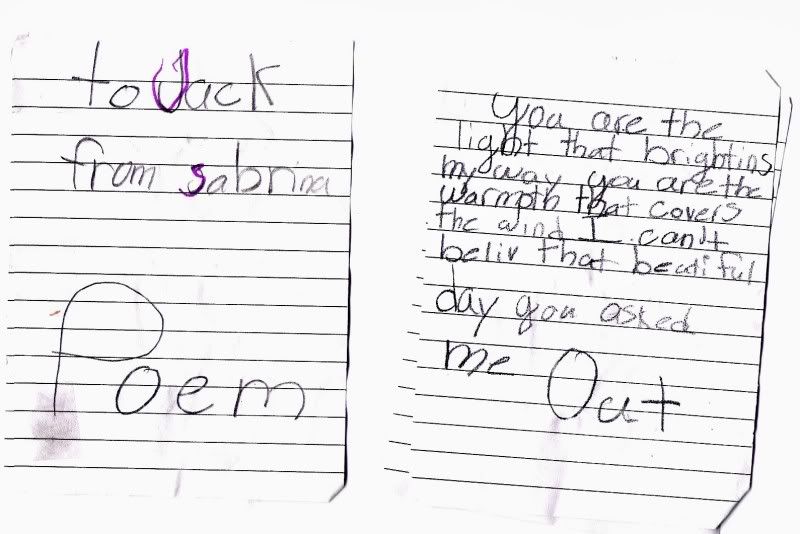 to Jack
from sabrina
Poem
You are the
light that brightins
my way you are the
warmpth that covers
the wind I can't
beliv that beatiful
day you asked
me Out